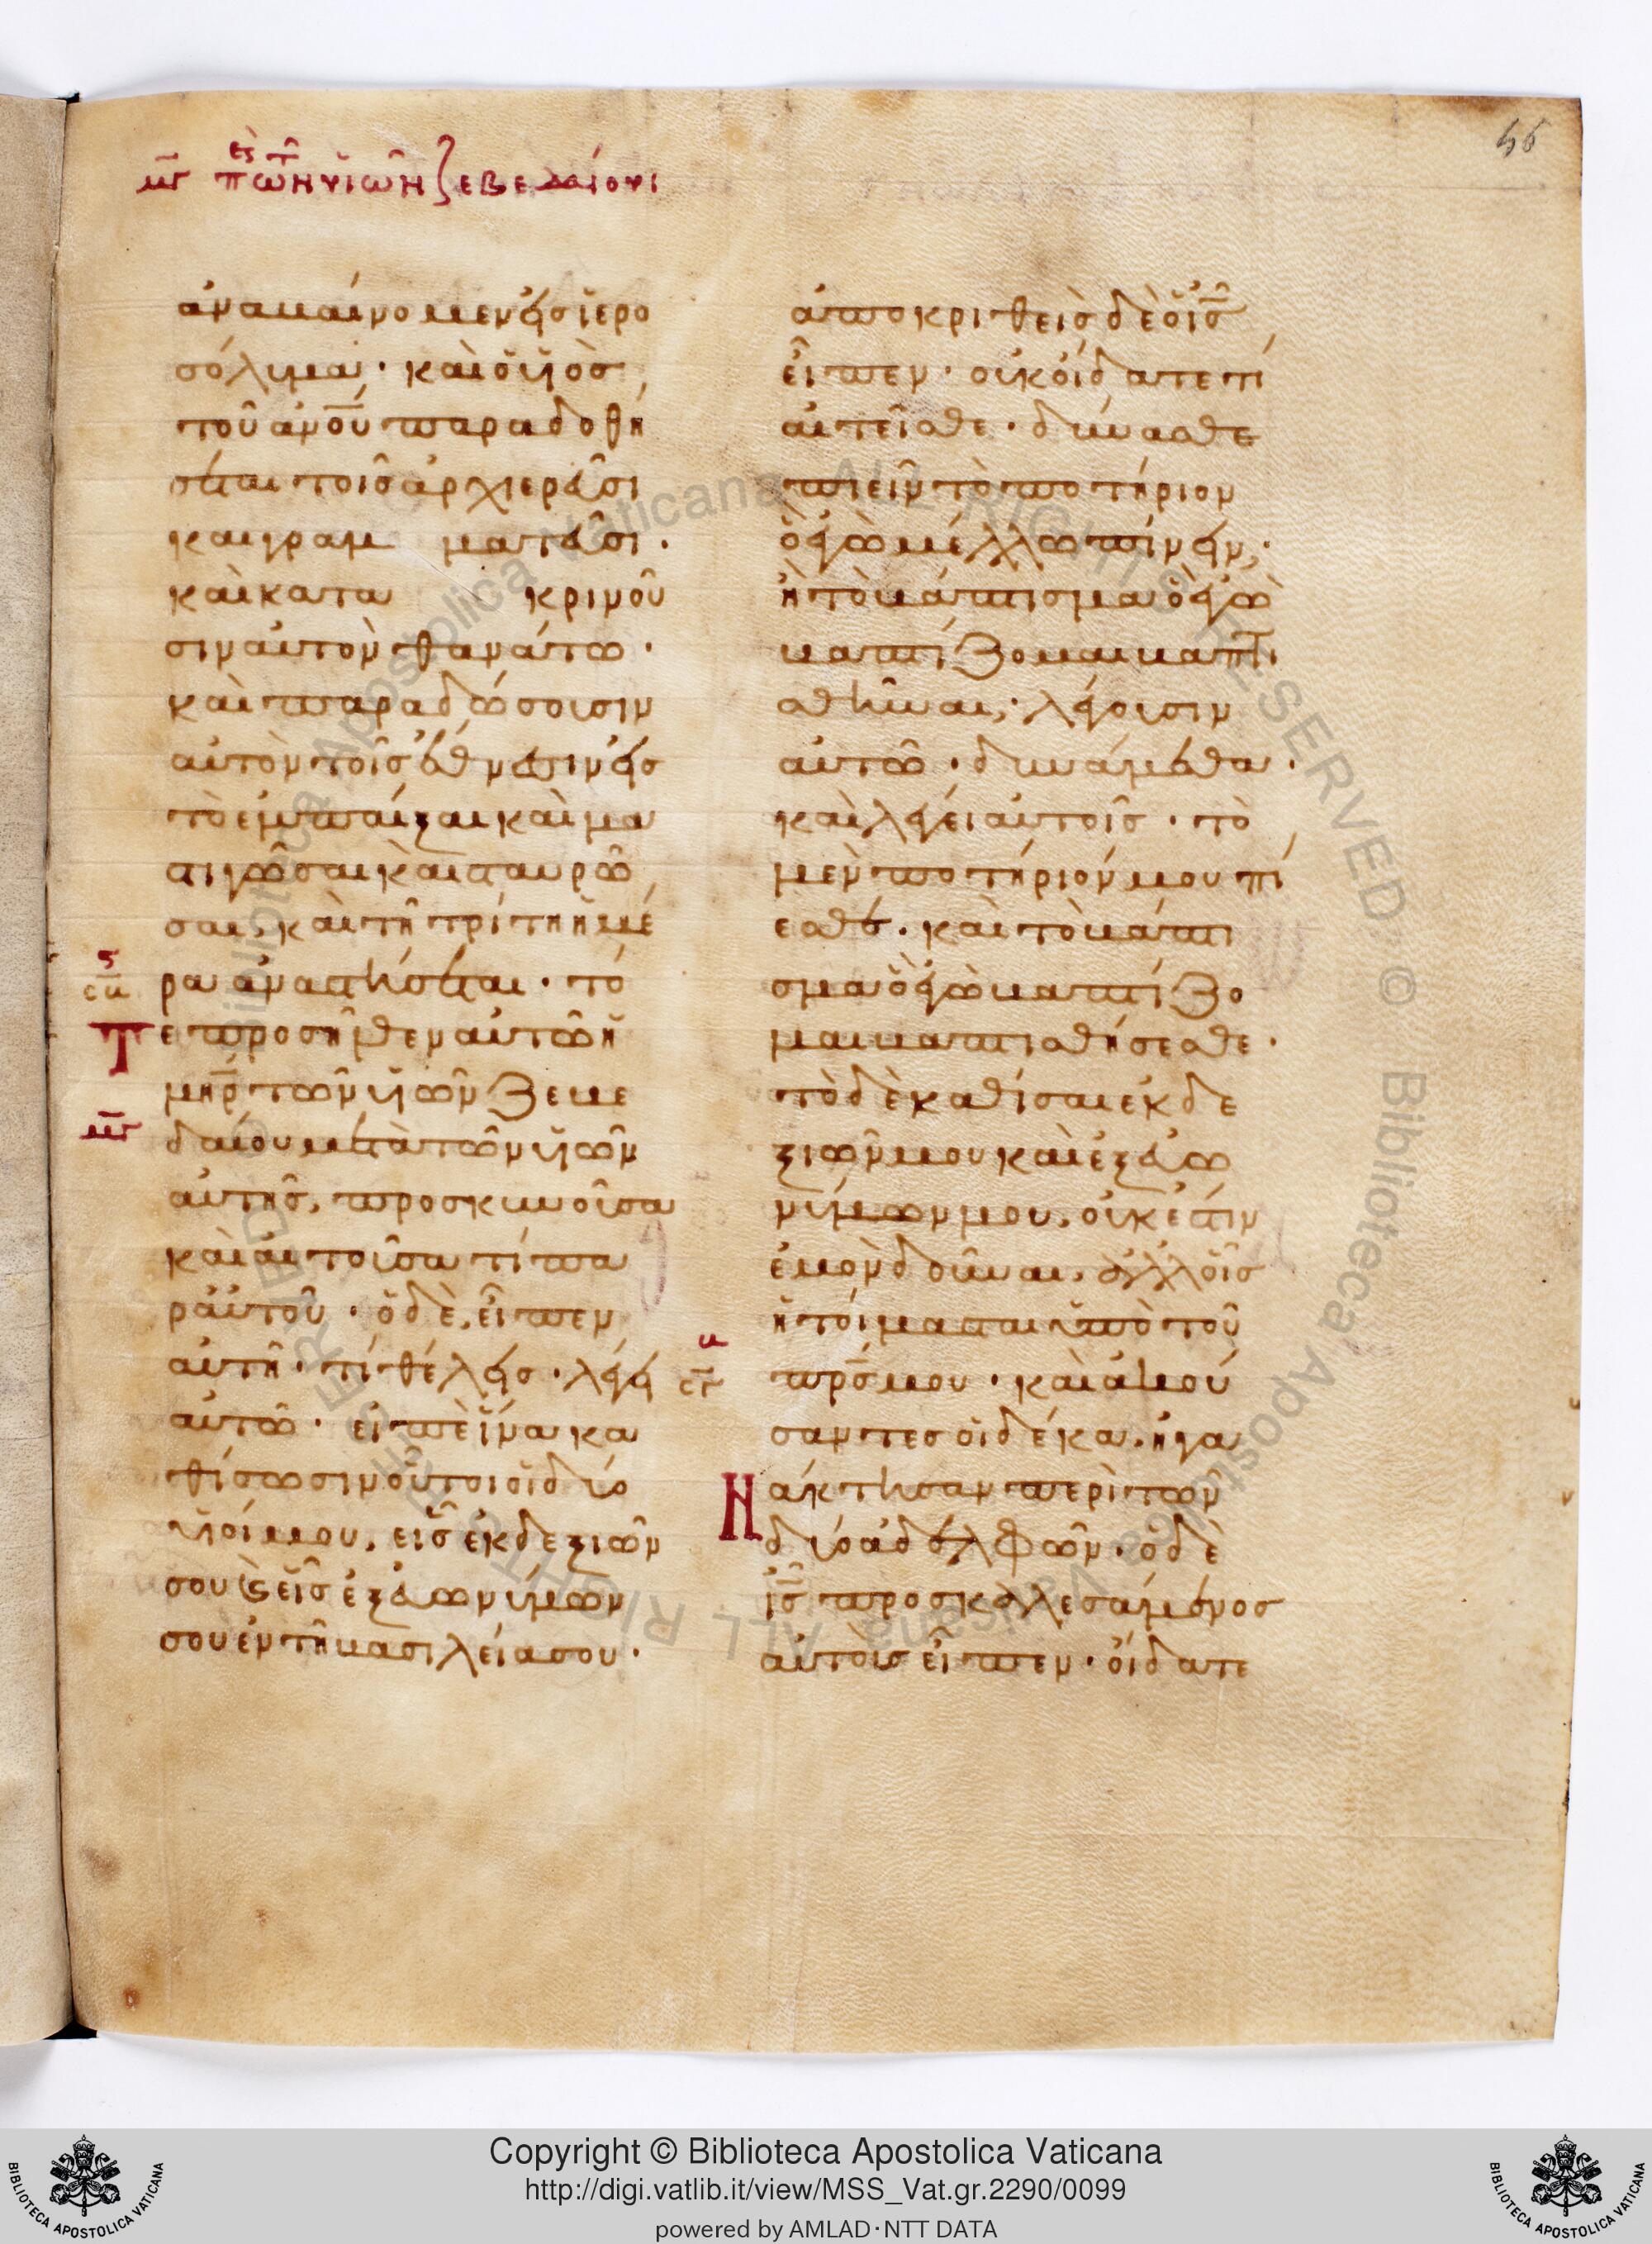 46
μγ π ἐρωτ τῶν υἱῶν Ζεβεδαίου
ἀναβαίνομεν εἰς ἱερο
σόλυμα· καὶ ὁ υἱὸς
τοῦ ἀνου παραδοθή
σεται τοῖς ἀρχιερεῦσι
και γραμ ματεῦσι·
καὶ κατα κρινοῦ
σιν αὐτὸν θανάτω·
καὶ παραδώσουσιν
αὐτὸν τοῖς ἔθνεσιν εἰς
τὸ ἐμπαῖξαι καὶ μα
στιγῶσαι καὶ σταυρῶ
σαι, καὶ τῆ τρίτη ἡμέ
ρα ἀναστήσεται· τό
τε προσῆλθεν αὐτῶ ἡ
μηρ τῶν υἱῶν Ζεβε
δαίου μετὰ τῶν υἱῶν
αὐτῆς, προσκυνοῦσα
καὶ αἰτοῦσα τί πα
ρ αὐτοῦ· ὁ δὲ, εἶπεν
αὐτῆ· τί θέλεις· λέγει
αὐτῶ· εἰπὲ ἵνα κα
θίσωσιν οὗτοι οἱ δύο
υἱοί μου, εἷς ἐκ δεξιῶν
σου ϗ εἷς ἐξ εὐωνύμων
σου ἐν τῆ βασιλεία σου·
ἀποκριθεὶς δὲ ὁ ις
εἶπεν· οὐκ οἴδατε τί
αἰτεῖσθε· δύνασθε
πιεῖν τὸ ποτήριον
ὃ ἐγὼ μέλλω πίνειν,·
ἢ τὸ βάπτισμα ὃ ἐγὼ
βαπτίζομαι βαπτι
σθῆναι,· λέγουσιν
αὐτῶ· δυνάμεθα·
καὶ λέγει αὐτοῖς· τὸ
μὲν ποτήριόν μου πί
εσθε· καὶ τὸ βάπτι
σμα ὃ ἐγὼ βαπτίζο
μαι βαπτισθήσεσθε·
τὸ δὲ καθίσαι ἐκ δε
ξιῶν μου καὶ ἐξ εὐω
νύμων μου, οὐκ ἔστιν
ἐμὸν δοῦναι, ἀλλ οἷς
ἡτοίμασται ὑπὸ τοῦ
πρς μου· καὶ ἀκού
σαντες οἱ δέκα, ἠγα
νάκτησαν περὶ τῶν
δύο ἀδελφῶν· ὁ δὲ
ις προσκαλεσάμενος
αὐτοὺς εἶπεν· οἴδατε
Copyright © Biblioteca Apostolica Vaticana
http://digi.vatlib.it/view/MSS_Vat.gr.2290/0099
powered by AMLAD·NTT DATA
BIBLIOTECA APOSTOLICA VATICANA
BIBLIOTECA APOSTOLICA VATICANA